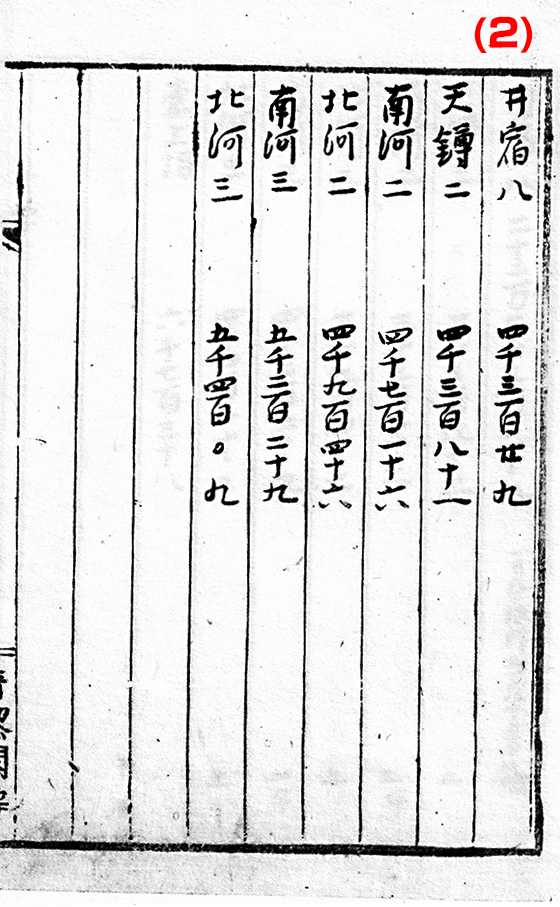 (2)
井宿八 四千三百廿九
天鐏二 四千三百八十一
南河二 四千七百一十六
北河二 四千九百四十六
南河三 五千二百二十九
北河三 五千四百○九